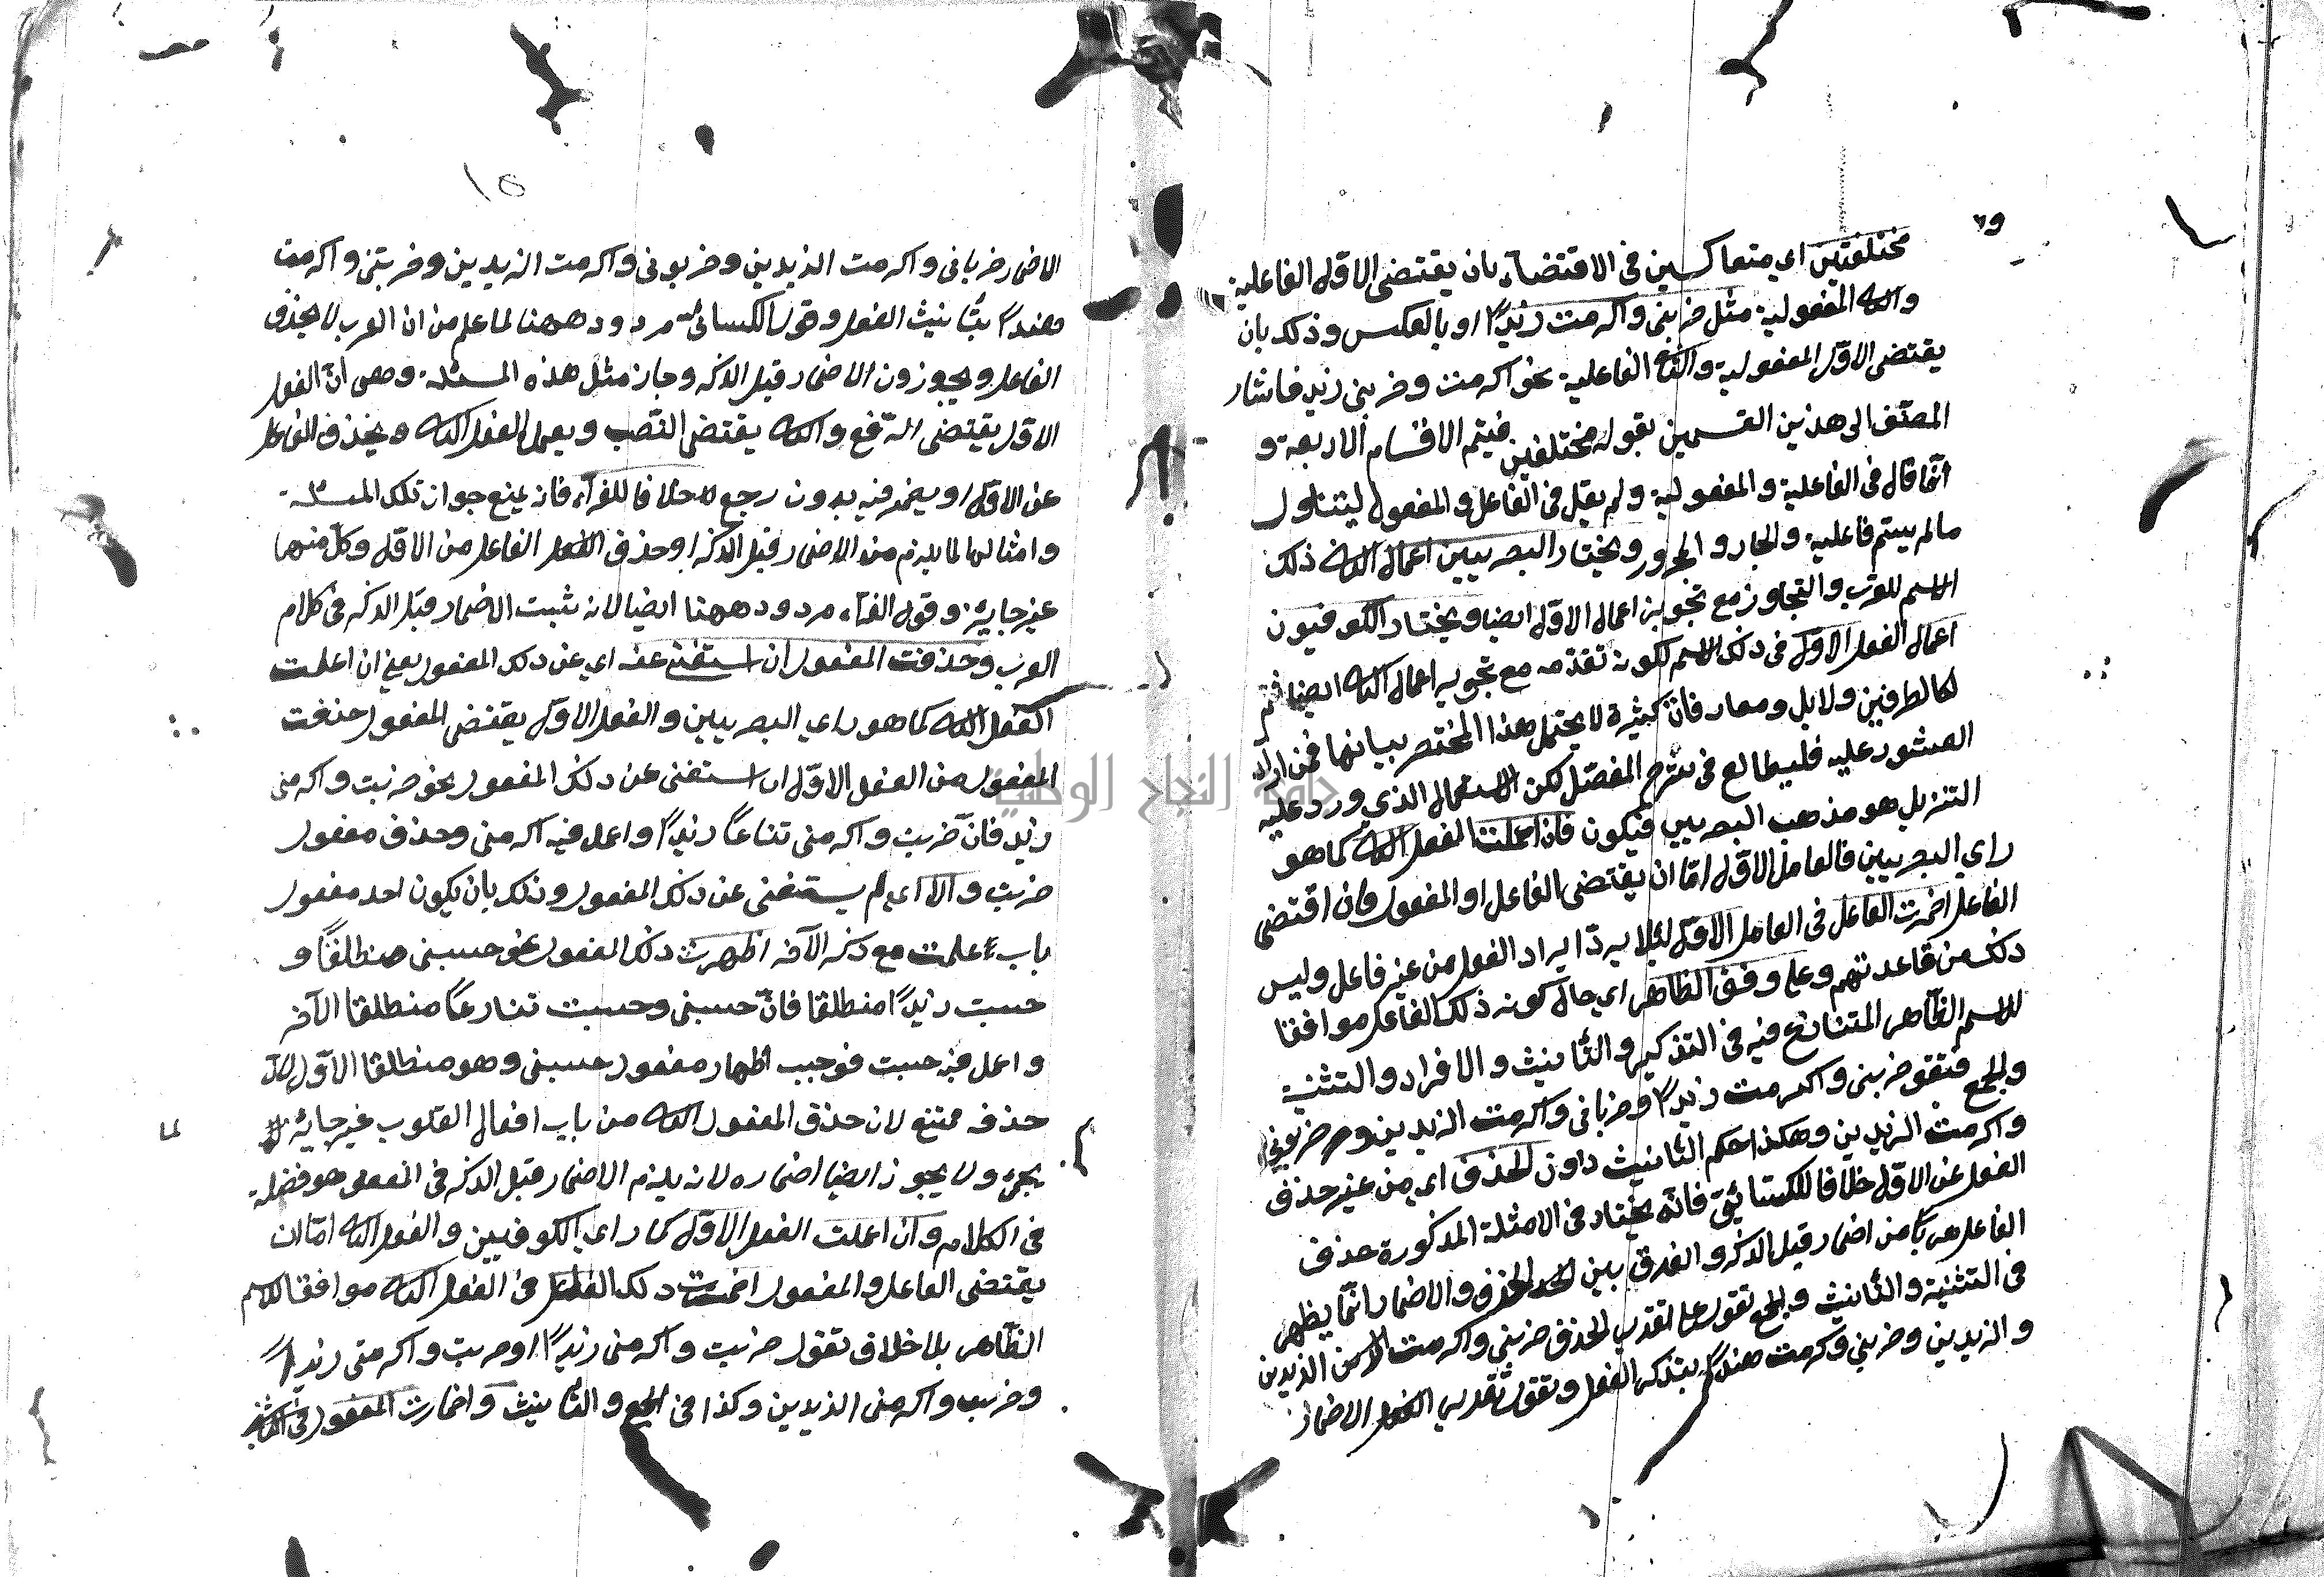 مختلفتين اى متعاكسين فى الاقتضاء بان يقتضى الاول الفاعلية
والثانى المفعولية مثل ضربنى واكرمت زيدًا او بالعكس وذلك بان
يقتضى الاول المفعولية والثانى الفاعلية نحو اكرمت وضربنى زيد فاشار
المصنف الى هذين القسمين بقوله مختلفين فيتم الاقسام الاربعة و
انما قال فى الفاعلية والمفعولية ولم يقل فى الفاعل والمفعول ليتناول
مالم يستم فاعليه والجار والمجرور ويختار البصريين اعمال الثانى ذلك
الاسم للقرب والتجاوز مع تجويز اعمال الاول ايضا ويختار الكوفيون
اعمال الفعل الاول فى ذلك الاسم لكونه تقدمه مع تجويز اعمال الثانى ايضا ثم
لكا لطرفين دلايل ومعارفات كثيرة لا يحتمل هذا المختصر بيانها فمن اراد
العشور عليه فليطالع فى شرح المفصل لكن الاستعمال الذي ورد عليه
التنزيل هو مذهب البصريين فيكون فان اعملت الفعل الثانى كما هو
راي البصريين فالعامل الاول اما ان يقتضى الفاعل او المفعول فان اقتضى
الفاعل اضمرت الفاعل فى العامل الاول لئلا يرد ايراد الفعل من غير فاعل وليس
ذلك من قاعدتهم وعلى وفق الظاهر اى حال كونه ذلك الفاعل موافقا
للاسم الظاهر المتنازع فيه فى التذكير والتأنيث والافراد والتثنية
والجمع فتقو ضربنى واكرمت زيدًا وضربانى واكرمت الزيدين وضربونى
واكرمت الزيدين وهكذا حكم التأنيث داون الحذف اى من غير حذف
الفعل عن الاول خلافا للكسائى فانه يختار فى الامثلة المذكورة حذف
الفاعل هربًا من اضمار قبل الذكر والفرق بين الحذف والاضمار انما يظهر
فى التثنية والتأنيث والجمع تقول على تقدير الحذف ضربنى واكرمت الزيدين
والزيدين وضربنى وكرمت هندًا بتذكير الفعل وتقول تقدير الاضمار
١٥
الاضمار ضربانى واكرمت الزيدين وضربونى واكرمت الزيدين وضربتنى واكرمت
هندًا بتأنيث الفعل وقول الكسائى مردود ههنا لما علم من ان العرب لا يحذف
الفاعل ويجوزون الاضمار قبل الذكر وجاز مثل هذه المسئلة وهى ان الفعل
الاول يقتضى الرفع والثانى يقتضى النصب ويعمل الفعل الثانى ويحذف الفاعل
عن الاول او يضمر فيه بدون رجع خلافا للفراء فانه يمنع جواز تلك المسئلة
وامثالها لما يلزم منه الاضمار قبل الذكر او حذف الفاعل من الاول وكل منهما
غير جايز وقول الفراء مردود ههنا ايضا لانه ثبت الاضمار قبل الذكر فى كلام
العرب وحذفت المفعول ان استغنى عنه اى عن ذلك المفعول يعنى ان اعملت
الفعل الثانى كما هو راي البصريين والفعل الاول يقتضى المفعول حذفت
المفعول من الفعل الاول ان استغنى عن ذلك المفعول نحو ضربت واكرمنى
زيد فان ضربت واكرمنى تنازعا زيدًا واعمل فيه اكرمنى وحذف مفعول
ضربت والا اى لم يستغنى عن ذلك المفعول وذلك بان يكون احد مفعول
باب علمت مع ذكر الآخر اظهرت ذلك المفعول نحو حسبنى منطلقًا و
حسبت زيدًا منطلقا فان حسبنى وحسبت تنازعا منطلقا الآخر
واعمل فيه حسبت فوجب اظهار مفعول حسبنى وهو منطلقا الاول لان
حذفه ممتنع لان حذف المفعول الثانى من باب افعال القلوب غير جايز
لما
يجئ ولا يجوز ايضا اضماره لانه يلزم الاضمار قبل الذكر فى المفعول هو فضلة
فى الكلام وان اعملت الفعل الاول كما راي الكوفيين والفعل الثانى اما ان
يقتضى الفاعل والمفعول اضمرت ذلك الفاعل فى الفعل الثانى موافقا للاسم
الظاهر بلا خلاف تقول ضربت واكرمنى زيدًا او ضربت واكرمنى زيدًا
وضربت واكرمنى الزيدين وكذا فى الجمع والتأنيث واضمارت المفعول فى
جامعة النجاح الوطنية